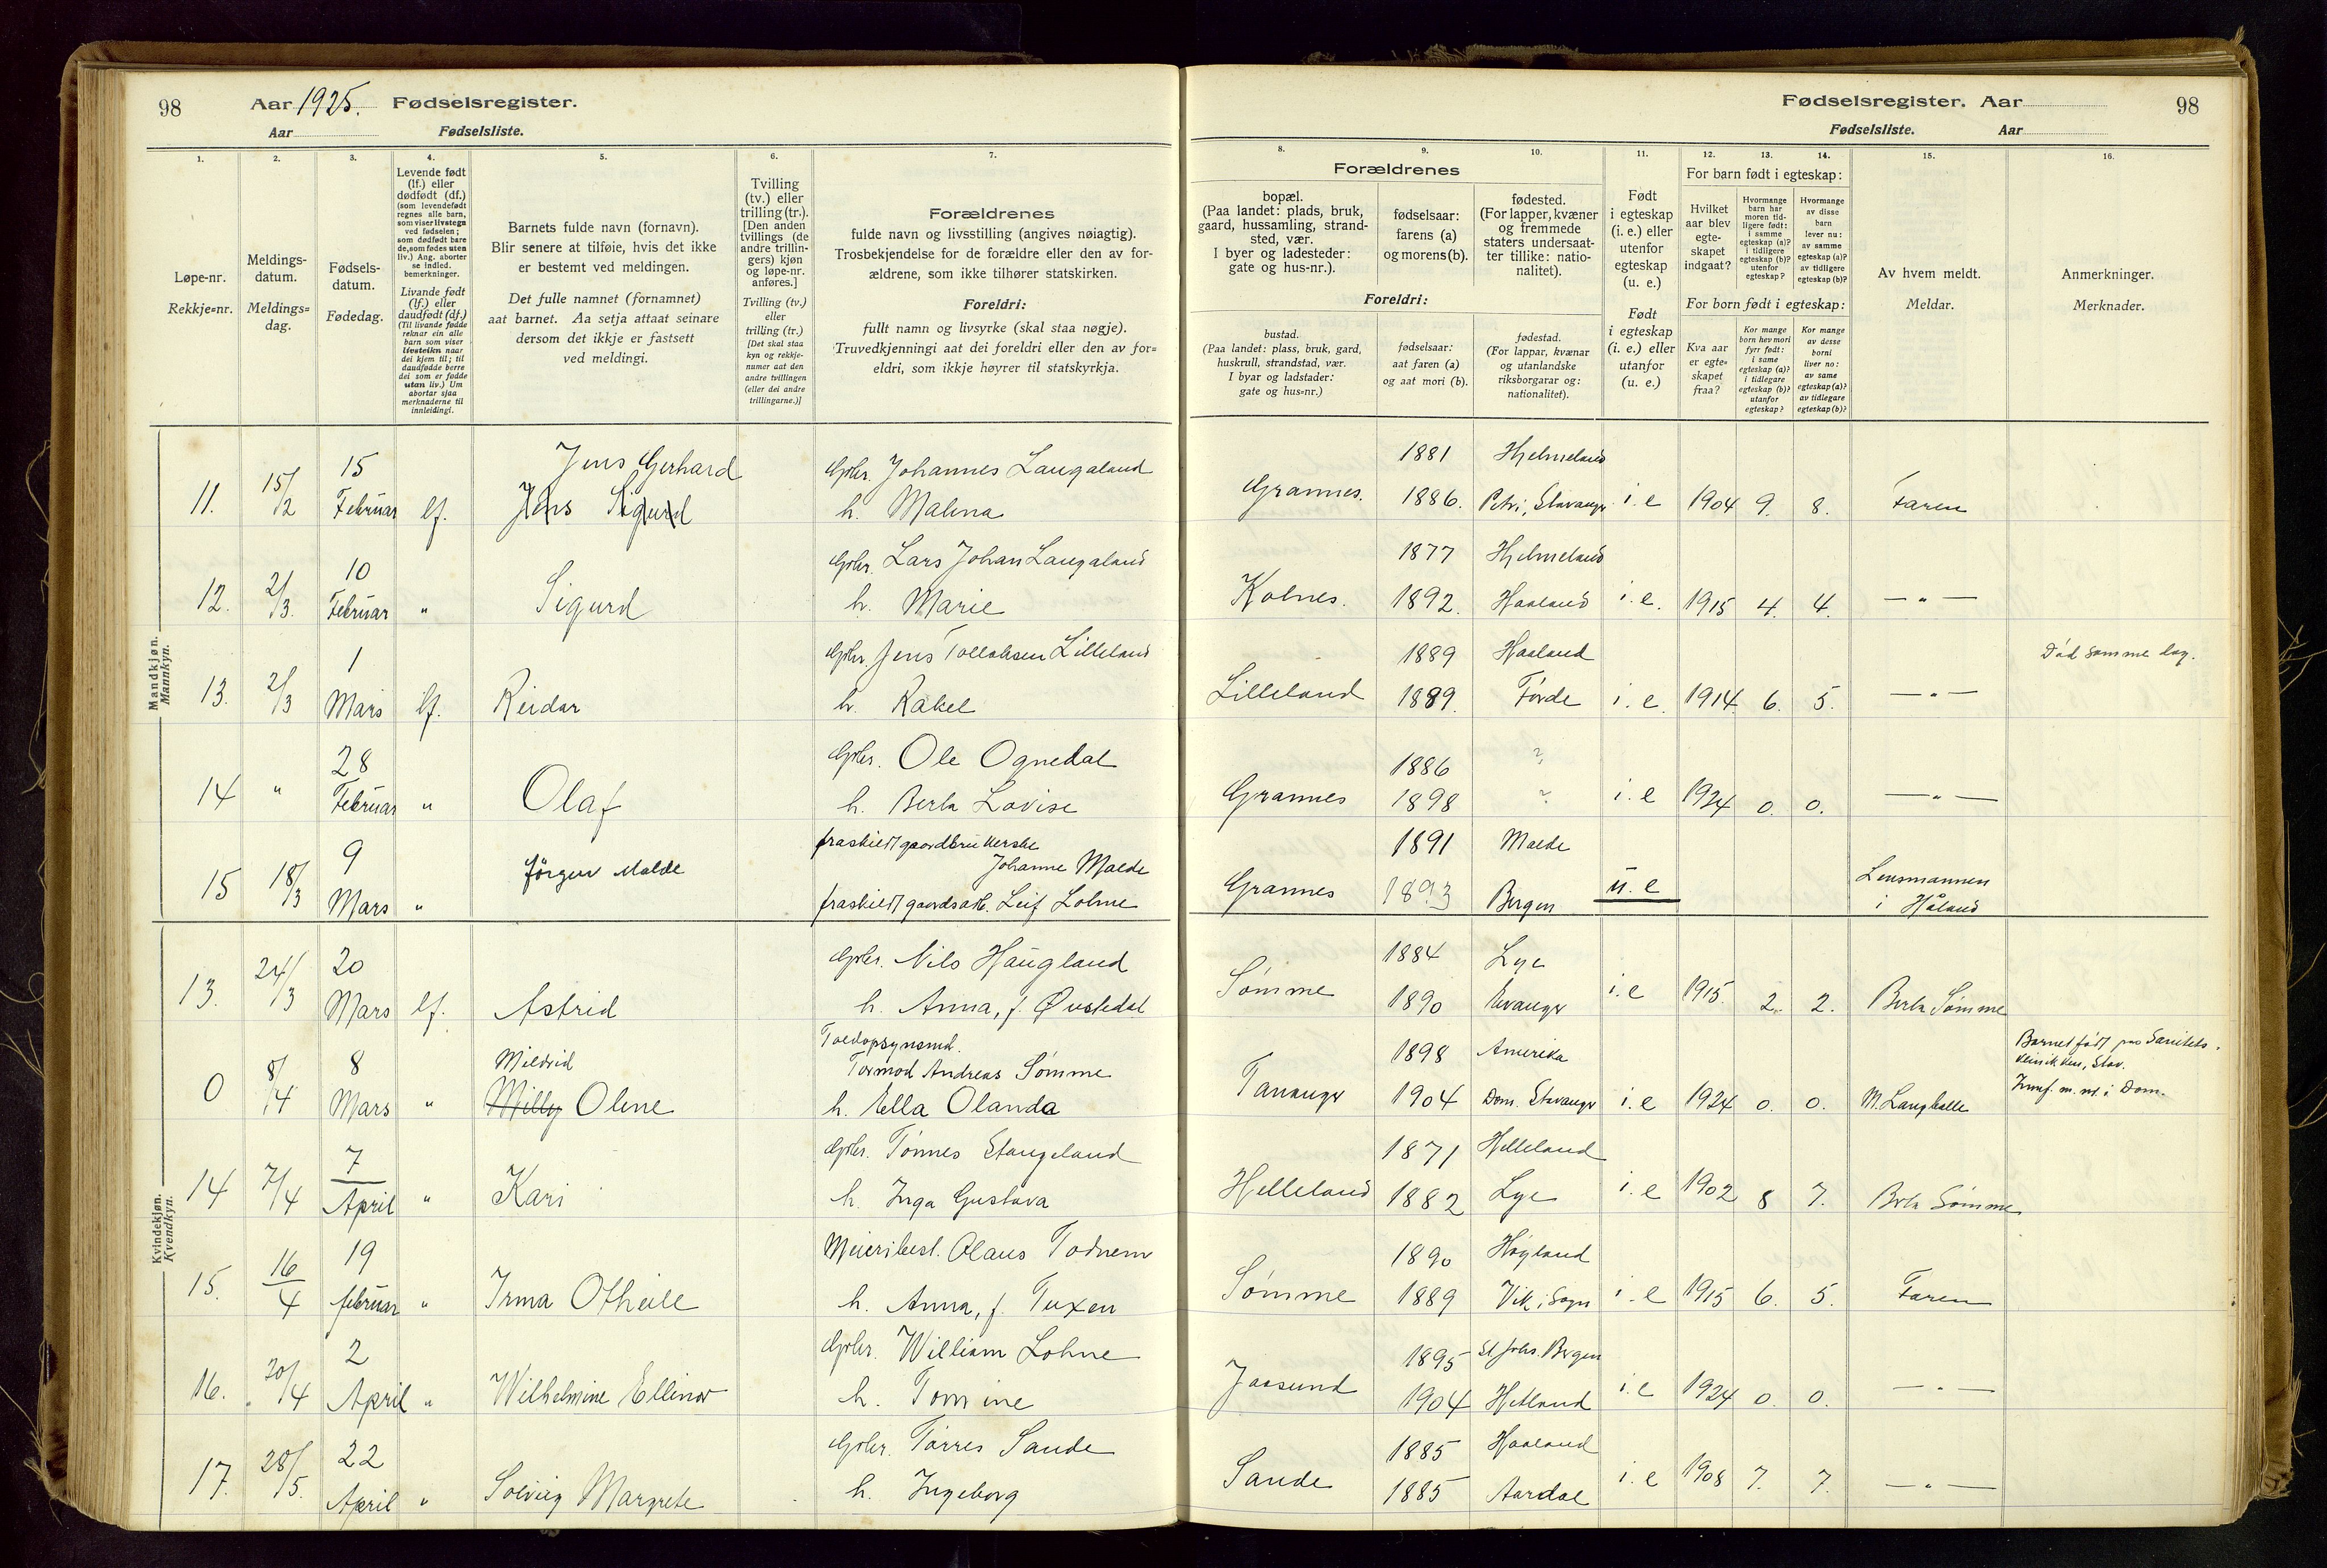 98 Aar 1925. Fødselsregister.
Aar Fødselsliste.
Fødselsregister. Aar 98
Fødselsliste. Aar
1. 2. 3. 4. 5. 6. 7.
Løpe-nr.
Rekkje=nr.
Meldings-
datum.
Meldings=
dag.
Fødsels-
datum.
Fødedag.
Levende født
(lf.) eller
dødfødt (df.)
(som levendefødt
regnes alle barn,
som viser livstegn
ved fødselen;
som dødfødt bare
de, som fødes uten
liv.) Ang. aborter
se indled.
bemerkninger.
Livande født
(lf.) eller
daudfødt (df.)
(Til livande fødde
reknar ein alle
barn som viser
livsteikn naar
dei kjem til; til
daudfødde berre
dei som er fødde
utan liv.) Um
abortar sjaa
merknaderne til
innleidingi.
Barnets fulde navn (fornavn).
Blir senere at tilføie, hvis det ikke
er bestemt ved meldingen.
Det fulle namnet (fornamnet)
aat barnet. Aa setja attaat seinare
dersom det ikkje er fastsett
ved meldingi.
Tvilling
(tv.) eller
trilling (tr.).
[Den anden
tvillings (de
andre trillin-
gers) kjøn
og løpe-nr.
anføres.]
Tvilling (tv.)
eller
trilling (tr.)
[Det skal staa
kyn og rekkje-
numer aat den
andre tvillingen
(eller dei andre
trillingarne.)]
Forældrenes
fulde navn og livsstilling (angives nøiagtig).
Trosbekjendelse for de forældre eller den av for-
ældrene, som ikke tilhører statskirken.
Foreldri:
fullt namn og livsyrke (skal staa nøgje).
Truvedkjenningi aat dei foreldri eller den av for=
eldri, som ikkje høyrer til statskyrkja.
8. 9. 10. 11. 12. 13. 14. 15. 16.
Forældrenes
bopæl.
(Paa landet: plads, bruk,
gaard, hussamling, strand-
sted, vær.
I byer og ladesteder:
gate og hus-nr.).
fødselsaar:
farens (a)
og morens (b).
fødested.
(For lapper, kvæner
og fremmede
staters undersaat-
ter tillike: natio-
nalitet).
Foreldri:
bustad.
(Paa landet: plass, bruk, gard,
huskrull, strandstad, vær.
I byar og ladstader:
gate og hus=nr.)
fødselsaar:
aat faren (a)
og aat mori (b).
fødestad.
(For lappar, kvænar
og utanlandske
riksborgarar og:
nationalitet).
Født
i egteskap
(i. e.) eller
utenfor
egteskap
(u. e.)
Født
i egteskap
(i. e.) eller
utanfor
(u. e.)
For barn født i egteskap:
Hvilket
aar blev
egte-
skapet
indgaat?
Hvormange
barn har
moren tid-
ligere født:
i samme
egteskap (a)?
i tidligere
egteskap (b)?
utenfor
egteskap?
Hvormange
av disse
barn
lever nu:
av samme
egteskap (a)?
av tidligere
egteskap (b)?
For born født i egteskap:
Kva aar
er egte-
skapet
fraa?
Kor mange
born hev mori
fyrr født:
i same
egteskap (a)?
i tidlegare
egteskap (b)?
utanfor
egteskap?
Kor mange
av desse
borni
liver no:
av same
egteskap (a)?
av tidlegare
egteskap (b)?
Av hvem meldt.
Meldar.
Anmerkninger.
Merknader.
Mandkjøn.
Mannkyn.
15 Jens Gerhard Gbr. Johannes Laugaland 1881 Hjelmeland
11. 15/2 Februar lf. Jens Sigurd h. Malina Grannes. 1886. Petri, Stavanger i. e 1904 9. 8. Faren
10 Gbr. Lars Johan Laugaland 1877 Hjelmeland
12. 2/3. Februar " Sigurd h. Marie Kolnes. 1892. Haaland i. e. 1915 4. 4. — " —
1 Gbr. Jens Tollaksen Lilleland 1889 Haaland Död samme dag.
13. 2/3 Mars lf. Reidar h. Rakel Lilleland 1889. Førde i. e. 1914. 6. 5. — " —
28 Gbr. Ole Ognedal 1886 ?
14 " Februar " Olaf h. Berta Lovise Grannes 1898 ? i. e 1924 0. 0. — " —
9 fraskilt gaardbrukerske 1891 Malde
Jørgen Malde Johanne Malde Lensmannen
15 18/3 Mars " fraskilt gaardsarb. Leif Lohne Grannes 1893 Bergen u. e i Håland
Kvindekjøn.
Kvendkyn.
20 Gbr. Nils Haugland 1884 Lye
13. 24/3 Mars lf. Astrid h. Anna, f. Øvstedal Sømme 1890 Evanger i. e 1915. 2. 2. Berta Sømme
8 Mildrid Toldopsynsmd. Barnet født paa Sanitets-
Tormod Andreas Sømme 1898 Amerika klinikken, Stav.
0 8/4 Mars " Milly Oline h. Ella Olanda Tananger 1904 Dom. Stavanger i. e 1924 0. 0. M. Langballe
7 Gbr. Tønnes Stangeland 1871 Helleland
14 7/4 April " Kari h. Inga Gustava Helleland 1882 Lye i. e 1902 8 7. Berta Sømme
19 Meieribest. Olaus Todnem 1890 Høyland
15. 16/4 februar " Irma Otheile h. Anna, f. Tuxen Sømme 1889 Vik i Sogn i. e 1915 6. 5. Faren
2 Gbr. William Lohne 1895 St. Johs. Bergen
16. 20/4 April " Wilhelmine Ellinor h. Tomine Jaasund 1904 Hetland i. e 1924 0. 0. — " —
22 Gbr. Tørres Sande 1885 Haaland
17. 28/5. April " Solveig Margrete h. Ingeborg Sande 1885 Aardal i. e 1908 7. 7. — " —